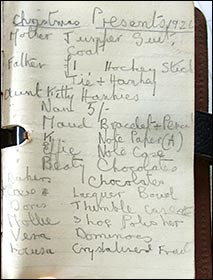 Christmas Presents 1921
Mother Jumper Suit,
Coat
Father £1 Hockey Stick
Tie + Hanky
Aunt Ketty Hankies
Nan 5/-
Maud Bracelet + Pencil
K Note Paper (A)
Effie Note Case
Beaty Chocolates
Chocolates
Lacquer Bowl
Doris Thimble Case
Mollie Shoe Polisher
Vera Dominoes
Louisa Crystalised Fruit